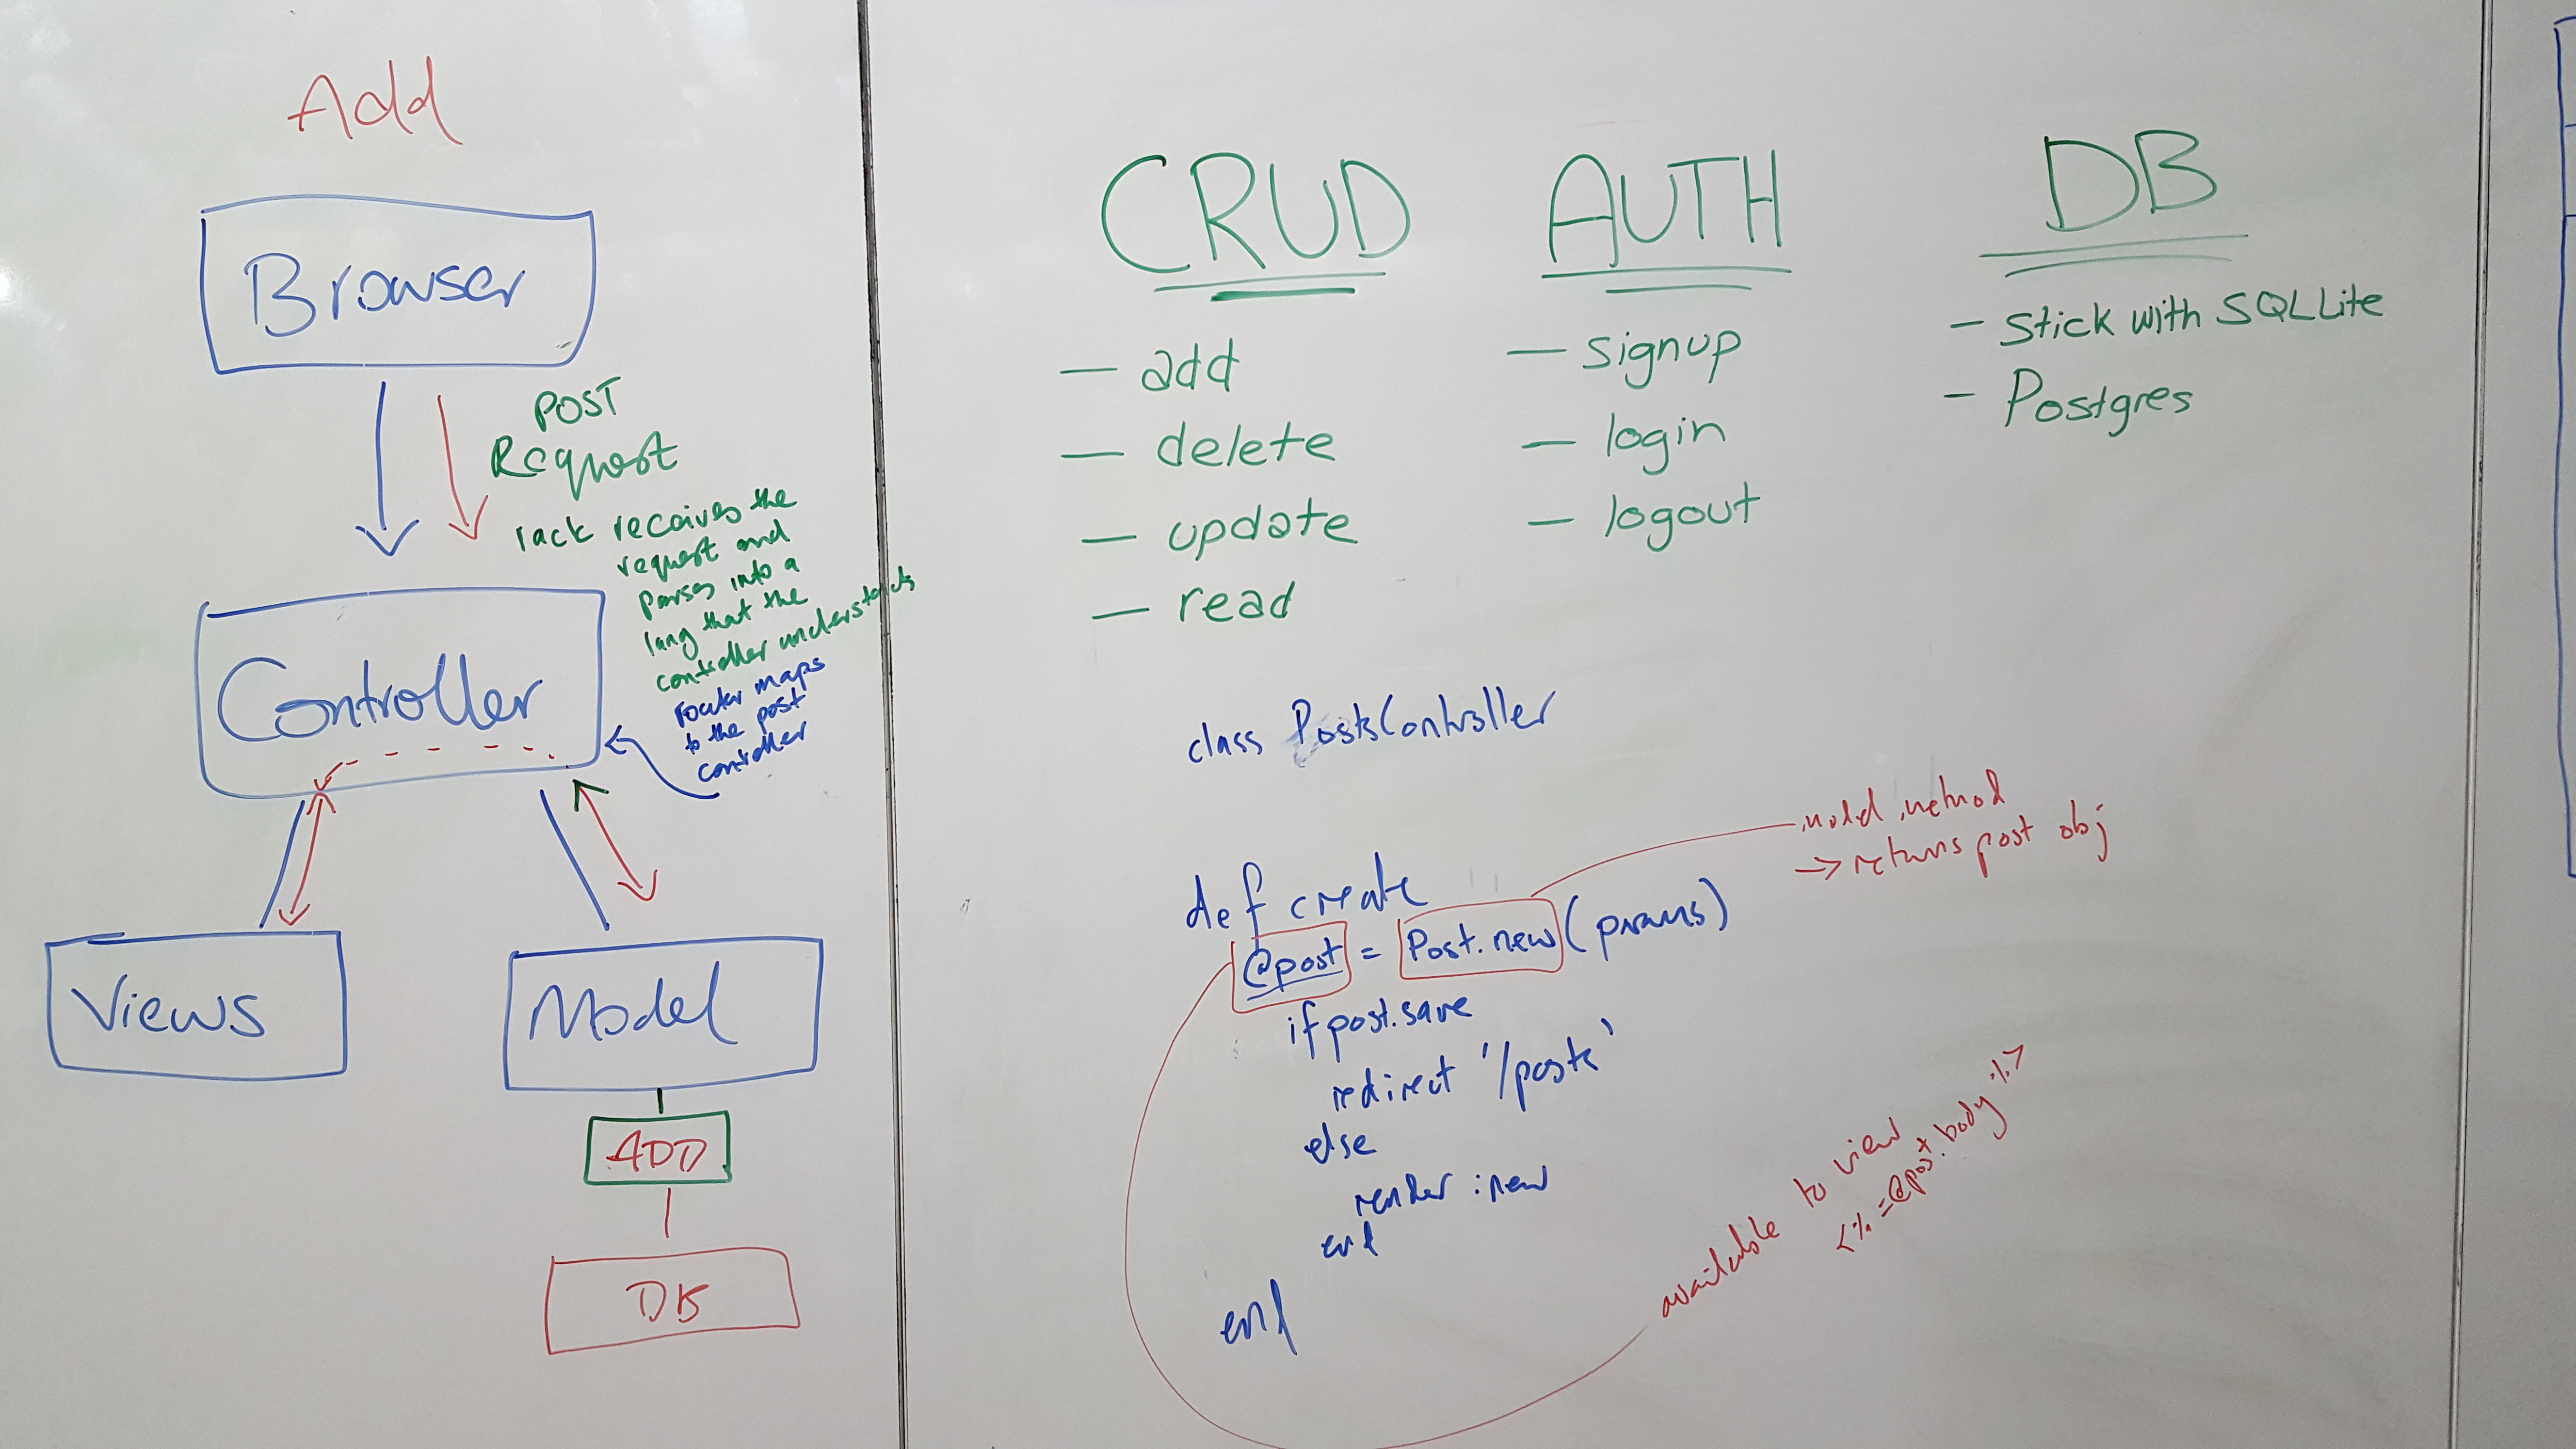 Add
Browser
POST
Request
rack receives the
request and
parses into a
lang that the
controller understands
router maps
to the post
controller
Controller
Views
Model
ADD
DB
CRUD
— add
— delete
— update
— read
AUTH
— signup
— login
— logout
DB
— Stick with SQLLite
- Postgres
class PostsController
def create
@post = Post.new (params)
if post.save
redirect '/posts'
else
render :new
end
end
model method
-> returns post obj
available to view
<%= @post.body %>